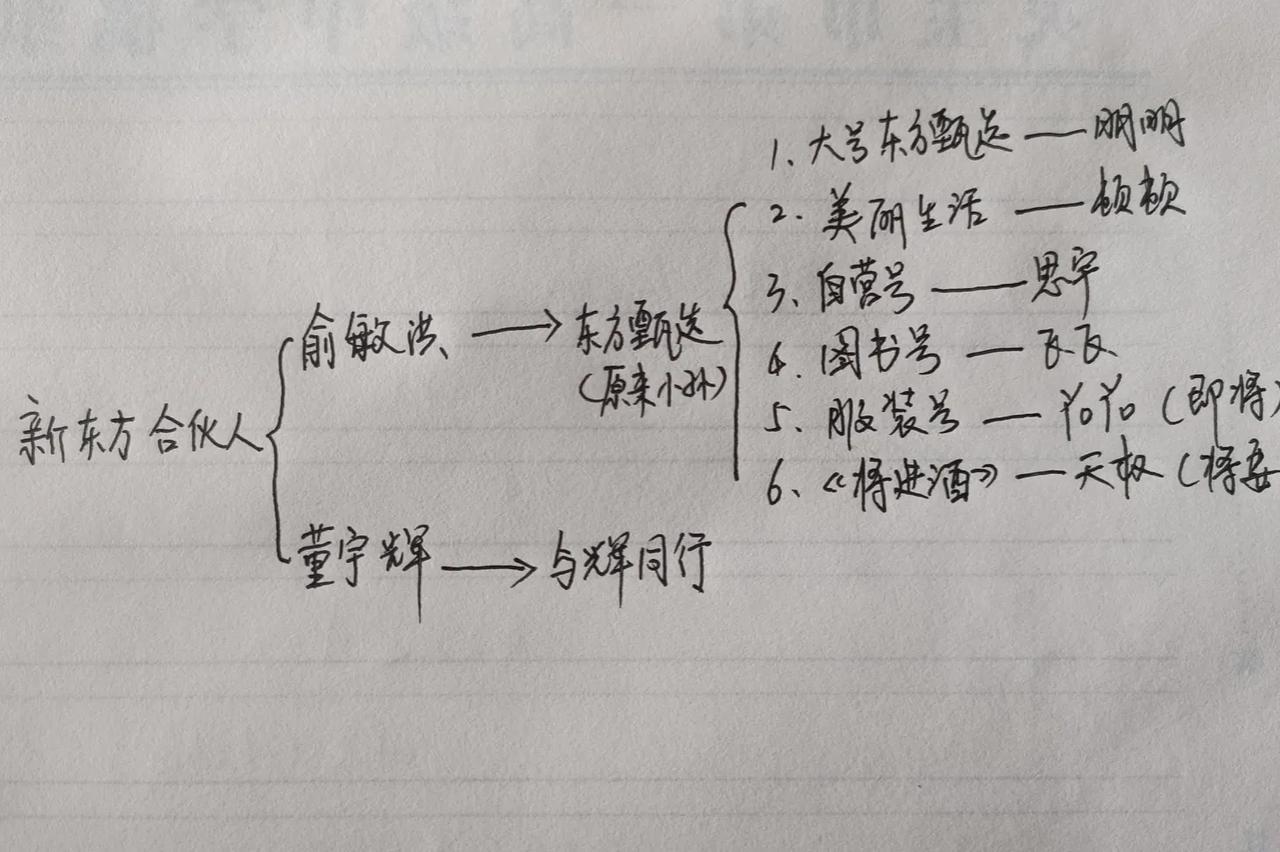 1、大号东方甄选 —— 明明
2. 美丽生活 —— 顿顿
3、自营号 —— 思宇
4. 图书号 —— 瓦瓦
5、服装号 —— YoYo (即将
6、《将进酒》—— 天权 (将要
俞敏洪 → 东方甄选
(原来小孙)
新东方合伙人
董宇辉 → 与辉同行